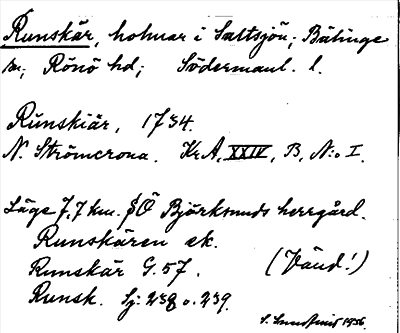 Runskär, holmar i Saltsjön; Bälinge
sn; Rönö hd; Södermanl. l.
Runskiär, 1734.
N. Strömcrona. Kr.A, XXIV, B, N:o I.
Läge 7,7 km. SÖ Björksunds herrgård.
Runskären ek.
Runskär G. 57. (Vänd!)
Runsk. Sj. 238 o. 239.
1956